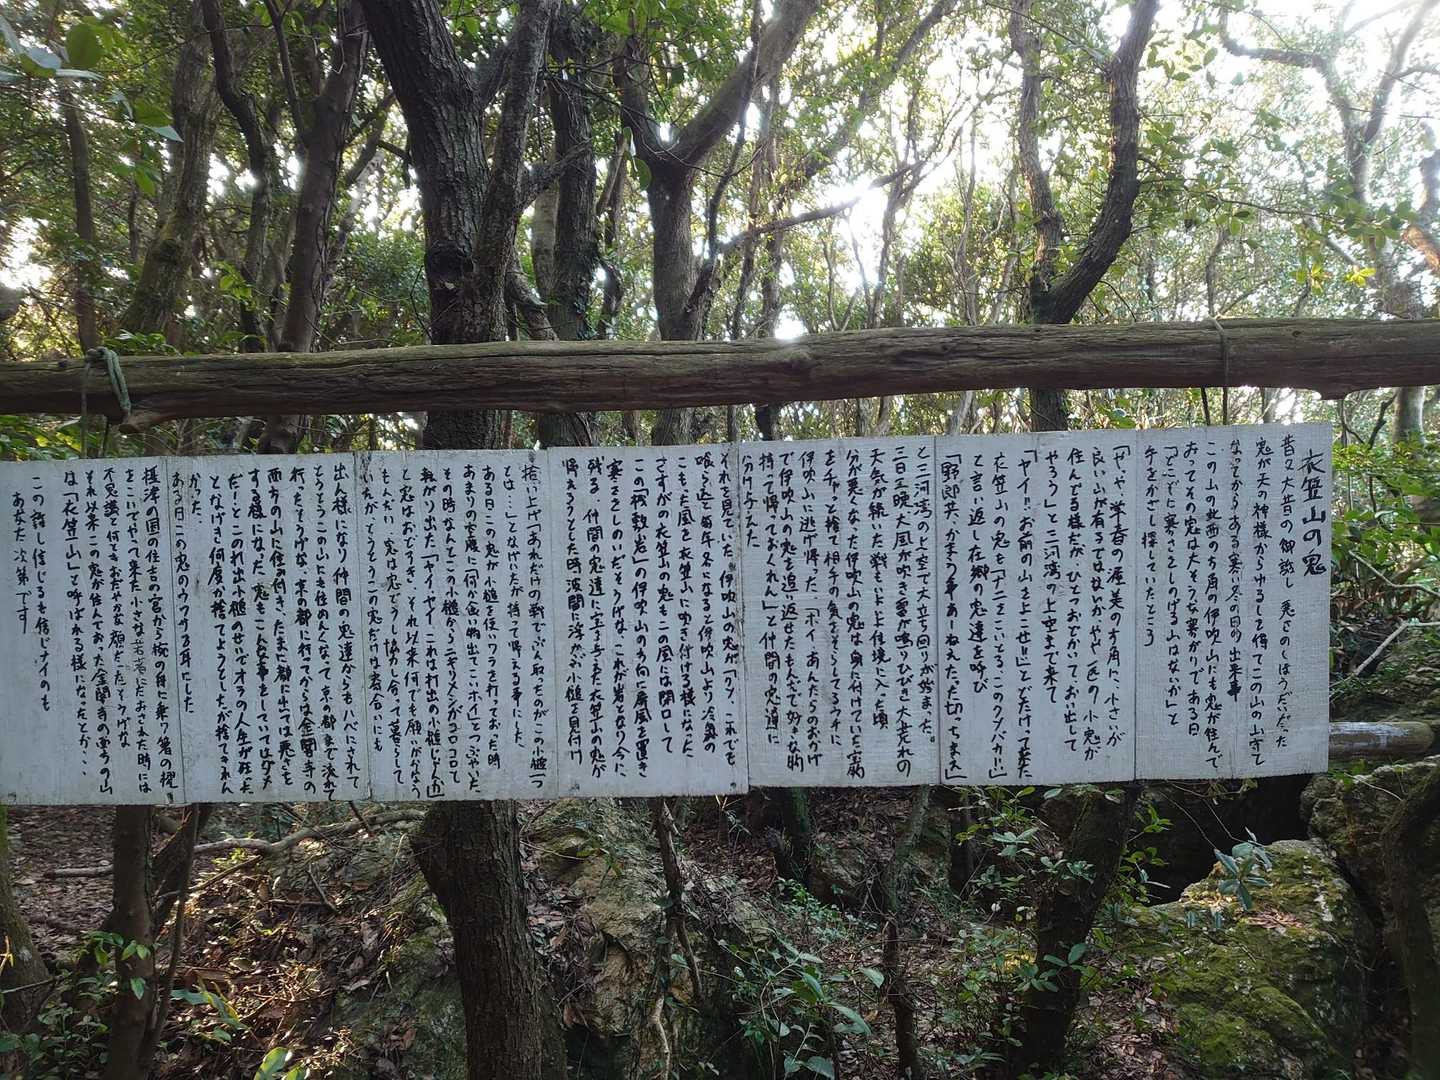 衣笠山の鬼
昔々大昔の御話し 悪さのしほうだいだった
鬼が天の神様からゆるしを得てこの山の山守と
なってからある寒い冬の日の出来事
この山の北西の方角の伊吹山にも鬼が住んで
おってその鬼は大そうな寒がりである日
「どこぞに寒さをしのげる山はないか」と
手をかざし探していたところ
「やゝや、半島の渥美の方角に、小さいが
良い山が有るではないか、やゝ一匹の小鬼が
住んどる様だが、ひとつおどかして、おい出して
やろう」と三河湾の上空まで来て
「ヤイ!!お前の山をよこせ!!」とどなった
衣笠山の鬼も「ナニをこいとる、このクソバカ!!」
と言い返し在郷の鬼達を呼び
「野郎共、かまう事あーねえ、たたっ切っちまえ」
と三河湾の上空で大立ち回りが始まった。
三日三晩大風が吹き雲が鳴りひびき大荒れの
天気が続いた戦もいよいよ佳境に入った頃
分が悪くなった伊吹山の鬼は身に付けていた宝物
をチョッと捨て相手の気をそらしてるスキに
伊吹山に逃げ帰った、「ホイ、あんたらのおかげ
で伊吹山の鬼を追い返せたもんで好きな物
持って帰っておくれん」と仲間の鬼達に
分け与えた
それを見ていた伊吹山の鬼が「クソ、これでも
喰らえ」と毎年冬になると伊吹山より冷気の
こもった風を衣笠山に吹き付ける様になった
さすがの衣笠山の鬼もこの風には閉口して
この「桟敷岩」の伊吹山の方向に屏風を置き
寒さをしのいだそうげな、これが岩となり今に
残る 仲間の鬼達に宝を与えた衣笠山の鬼が
帰えろうとした時波間に浮かぶ小槌を見付け
拾い上げ「あれだけの戦でぶん取ったのがこの小槌一つ
とは…」となげいたが持って帰える事にした、
ある日この鬼が小槌を使いワラを打っておった時
あまりの空腹に「何か食い物出てこいホイ」とつぶやいた
その時なんとこの小槌からニギリメシがコロコロと
転がり出た「ヤイヤイ、これは打出の小槌じゃんか」
と鬼はおどろき、それ以来何でも願いがかなう
もんだい、鬼は鬼どうし協力し合って暮らして
いたがとうとうこの鬼だけは寄合いにも
出ん様になり仲間の鬼達からもハバにされて
とうとうこの山にも住めんくなって京の都まで流れて
行ったそうげな、京の都に行ってからは金閣寺の
西方の山に住み付き、たまに都に出ては悪さを
する様になった、鬼も「こんな事をしていてはダメ
だーとこの打出小槌のせいでオラの人生が狂った」
となげき何度か捨てようとしたが捨てきれん
かった、
ある日この鬼のウワサを耳にした
摂津の国の住吉の宮から椀の舟に乗り箸の櫂
をこいでやって来た小さな若者におさえた時には
不思議と何ともおだやかな顔だったそうげな
それ以来この鬼が住んでおった金閣寺の西方の山
は「衣笠山」と呼ばれる様になったとか、、、
この話し信じるも信じナイのも
あなた次第です